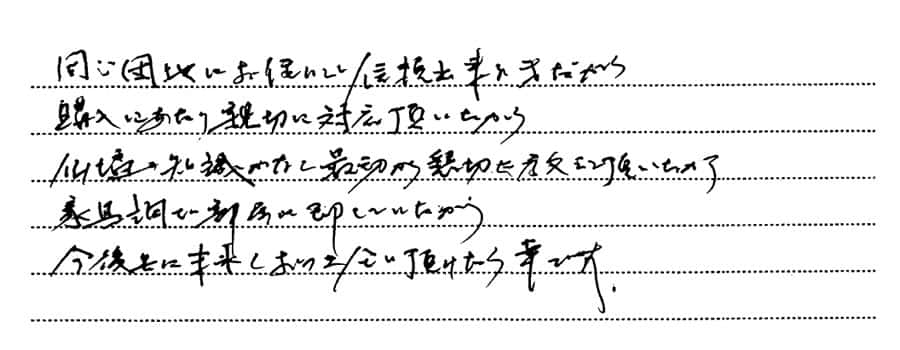 同じ団地にお住いで信頼出来そうだから
購入にあたり親切に対応頂いたから
仏壇の知識がなく最初から懇切に応えて頂いたので
家具調で部屋に即していたから
今後共に末永くおつき合い頂けたら幸です.